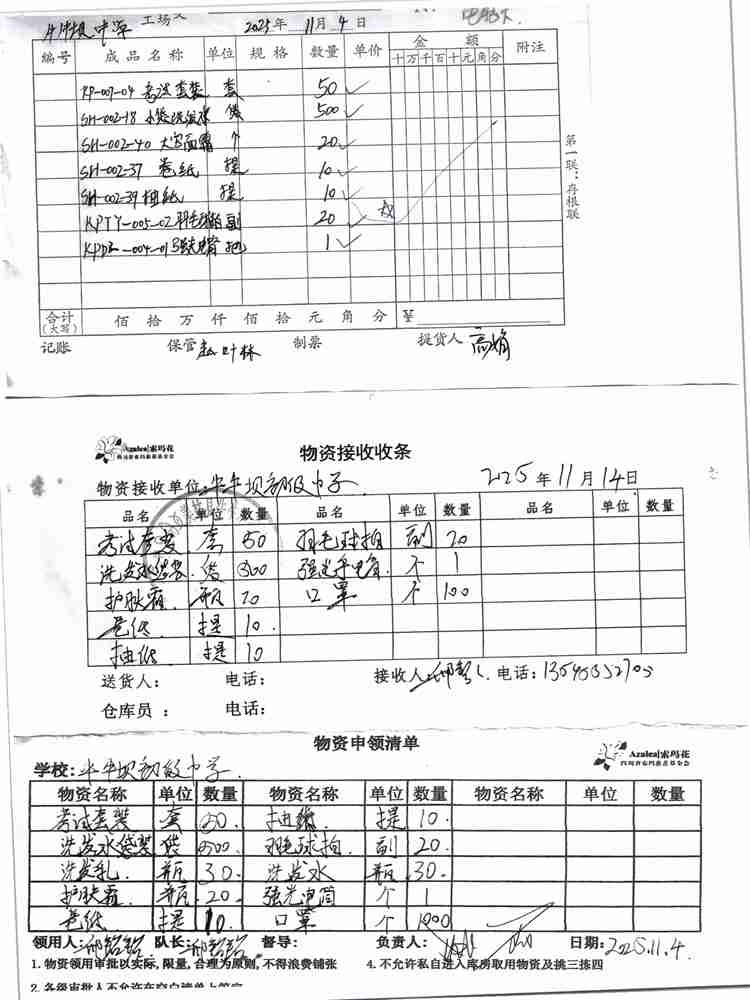 2025年 11月 4日
编号 成品名称 单位 规格 数量 单价 金额 附注
十万千百十元角分
KP-007-04 考试套装 套 50
SH-002-18 小袋洗发水 袋 500
SH-002-40 大宝面霜 个 20
SH-002-37 卷纸 提 10
SH-002-39 抽纸 提 10
KPTY-005-02 羽毛球拍 副 20
004-01 把 1
第一联：存根联
合计(大写) 佰拾万仟佰拾元角分 ¥
记账 保管 叶林 制票 提货人 高娟
Azalea|索玛花
物资接收收条
物资接收单位: 牛牛坝初级中学 2025年11月14日
品名 单位 数量 品名 单位 数量 品名 单位 数量
考试套装 套 50 羽毛球拍 副 20
洗发水袋装 袋 500 强光手电筒 个 1
护肤霜 瓶 20 口罩 个 100
卷纸 提 10
抽纸 提 10
送货人： 电话： 接收人 电话：
仓库员： 电话：
物资申领清单
Azalea|索玛花
四川省索玛慈善基金会
学校: 牛牛坝初级中学
物资名称 单位 数量 物资名称 单位 数量 物资名称 单位 数量
考试套装 套 50. 抽纸 提 10.
洗发水袋装 袋 500. 羽毛球拍 副 20.
洗发乳 瓶 30. 洗发水 瓶 30.
护肤霜 瓶 20. 强光电筒 个 1
卷纸 提 10. 口罩 个 1000
领用人: 队长: 督导: 负责人: 日期: 2025.11.4.
1. 物资领用审批以实际, 限量, 合理为原则, 不得浪费铺张 4. 不允许私自进入库房取用物资及挑三拣四